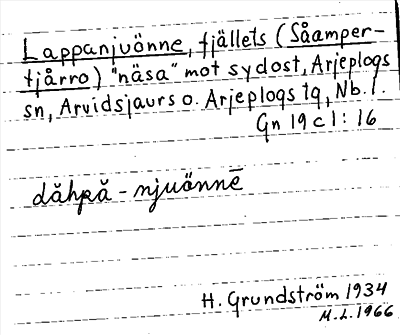 Lappanjuönne, fjällets (Såamper-
tjårro) "näsa" mot sydost, Arjeplogs
sn, Arvidsjaurs o. Arjeplogs tg, Nb. l.
Gn 19 c 1:16
dǎhpǎ - njuönnē
H. Grundström 1934
M.L. 1966